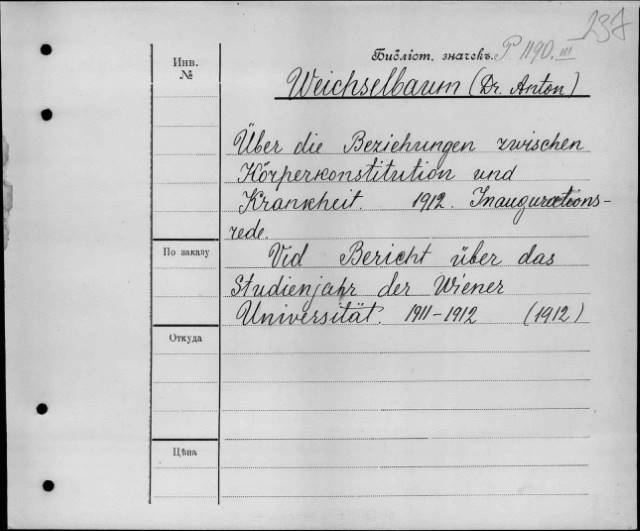 237
Инв.
№
Библіот. значекъ. P 1190.III
Weichselbaum (Dr. Anton)
Über die Beziehungen zwischen
Körperkonstitution und
Krankheit. 1912. Inaugurations-
rede.
По заказу
Vid Bericht über das
Studienjahr der Wiener
Universität. 1911-1912 (1912)
Откуда
Цѣна